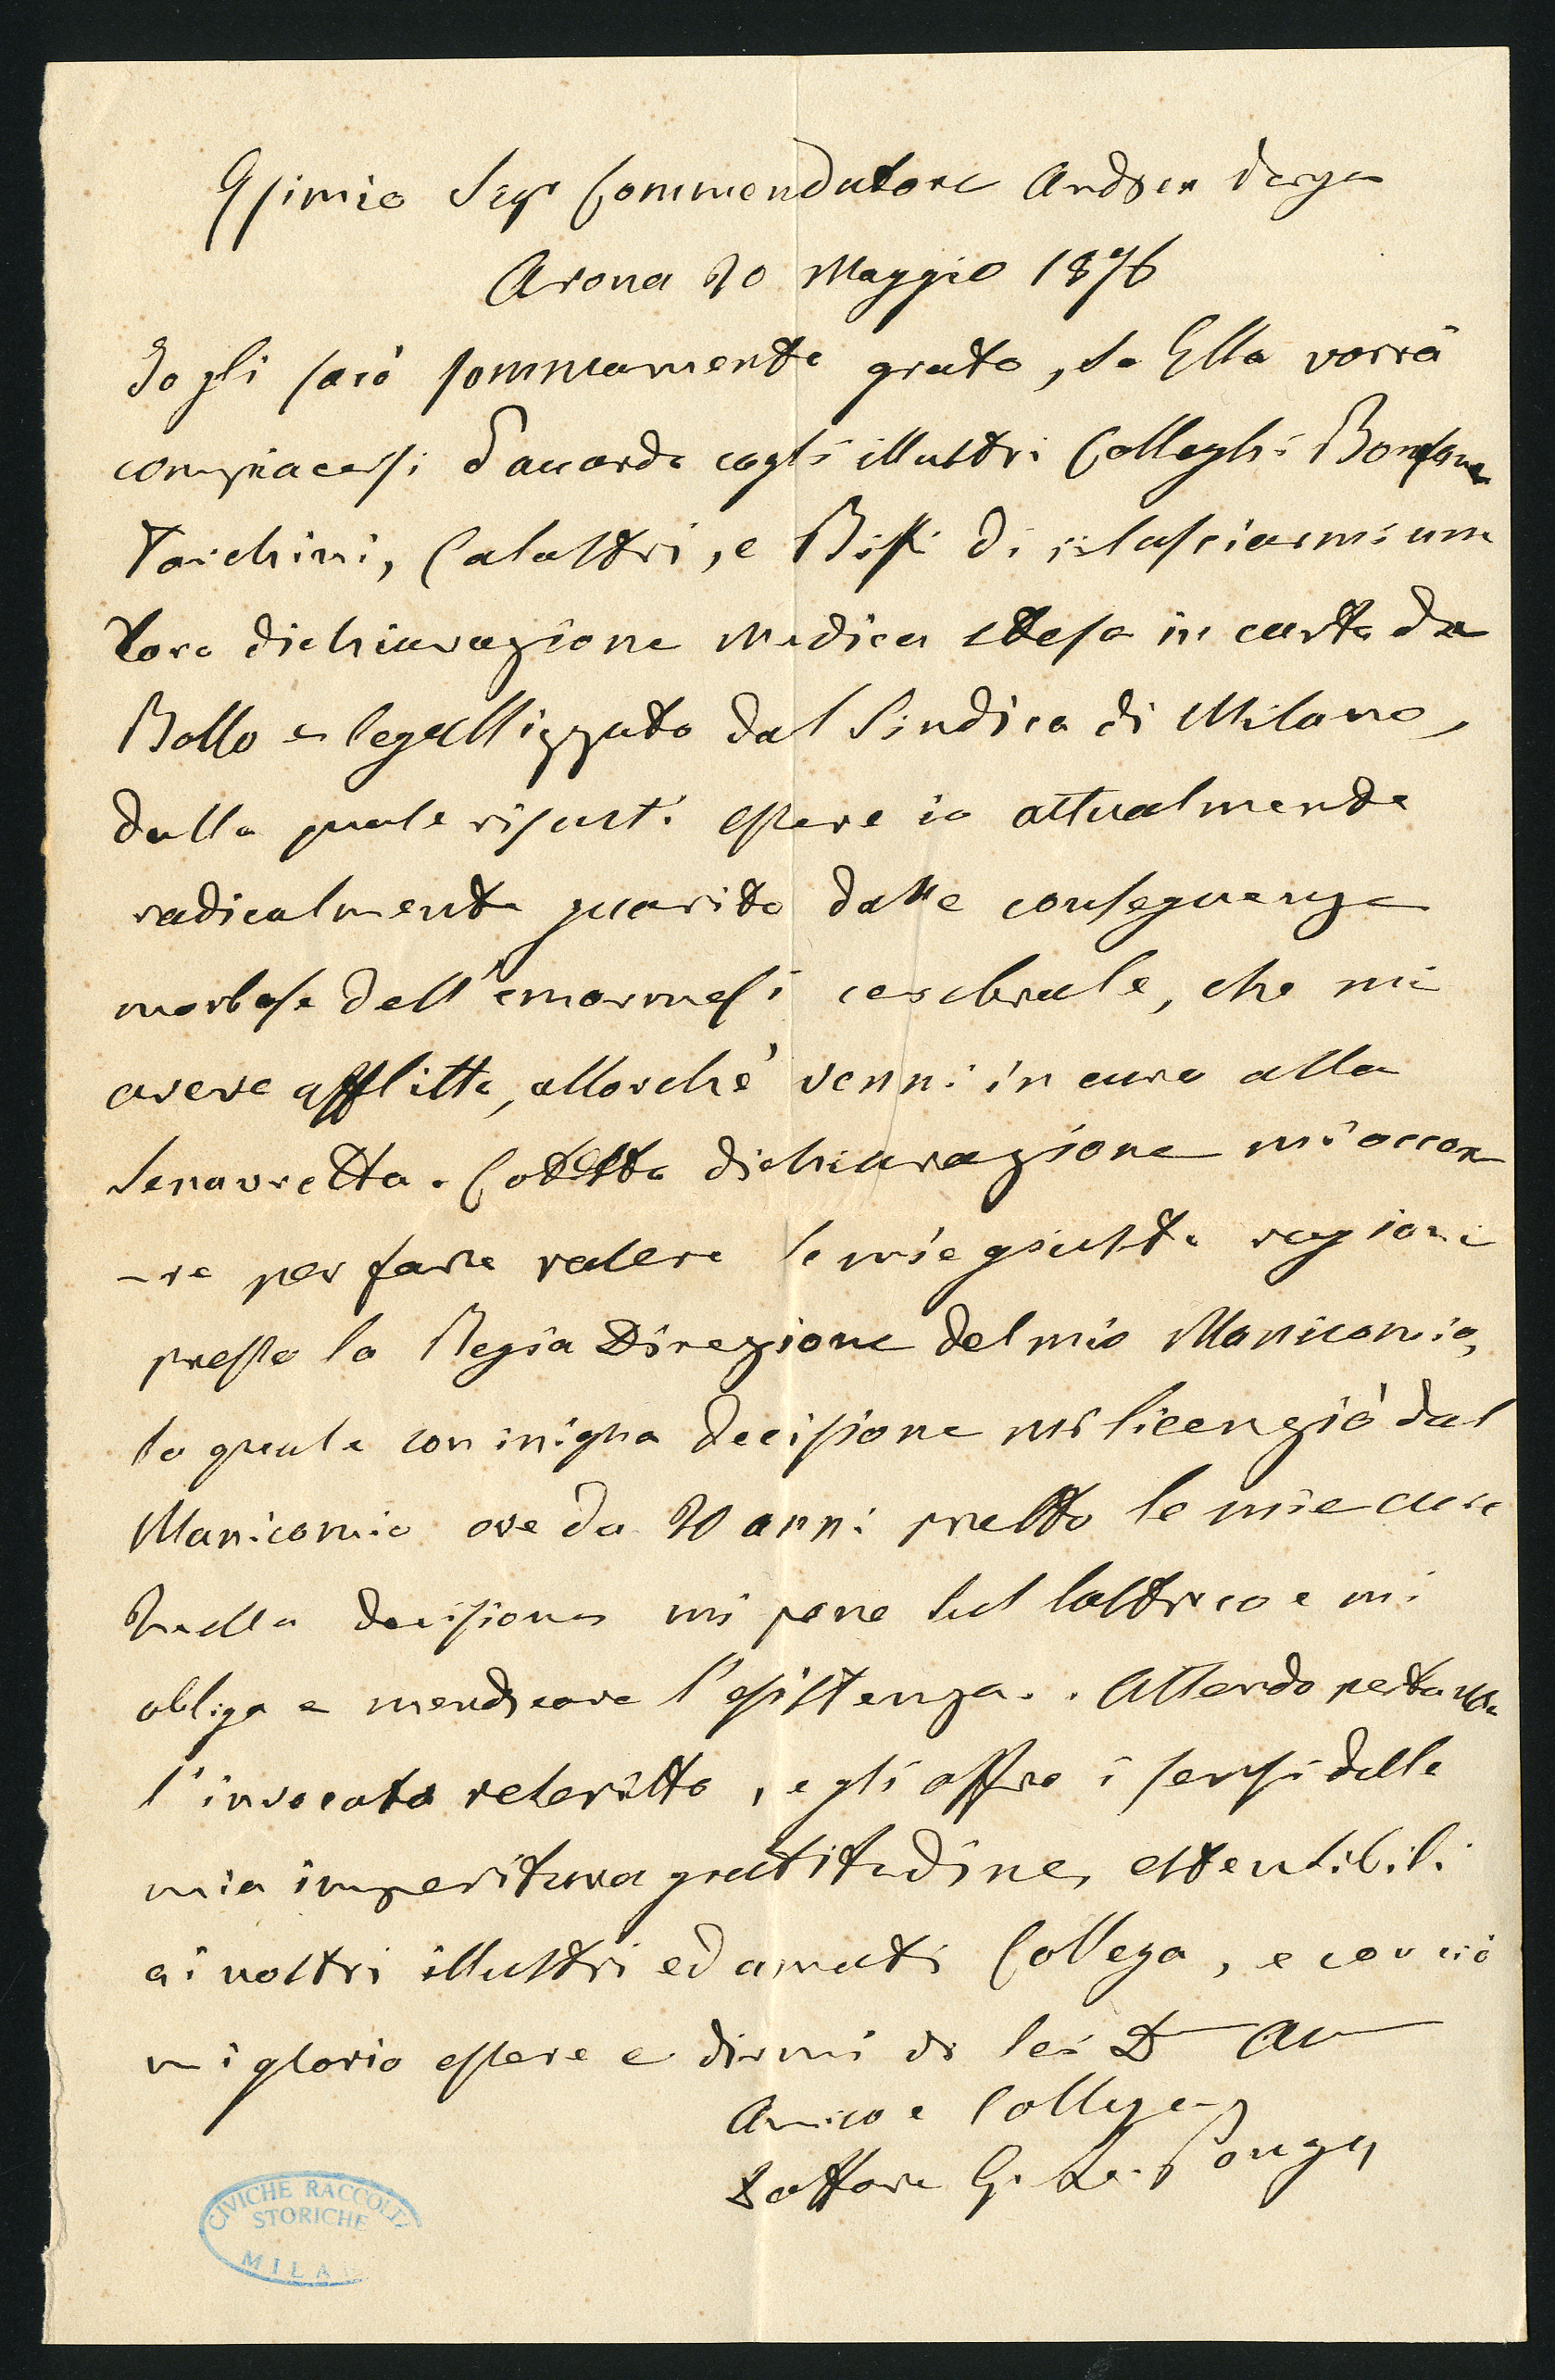 Esimio Sigr Commendatore Andrea Verga
Arona 20 Maggio 1876
Io gli sarò sommamente grato, se Ella vorrà
compiacersi d'accordo cogli illustri Colleghi Bonfanti
Tarchini, Calastri, e Biffi di rilasciarmi una
loro dichiarazione medica stesa in carta da
Bollo e legallizzata dal Sindico di Milano,
dalla quale risulti essere io attualmente
radicalmente guarito dalle conseguenze
morbose dell'emormesi cerebrale, che mi
aveva afflitto, allorchè venni in cura alla
Senavretta. Cotesta dichiarazione mi occor
-re per fare valere le mie giuste ragioni
presso la Regia Direzione del mio Manicomio,
la quale con iniqua decisione mi licenziò dal
Manicomio ove da 20 anni presto le mie cure
Quella decisione mi pone sul lastrico e mi
obliga a mendicare l'esistenza. . Attendo pertanto
l'invocato , e gli offro i sensi della
mia imperitura gratitudine, estensibili
ai nostri illustri ed amati Collega, e con ciò
mi glorio essere e dirmi di lei D Au
Amico e Collega
Dottore G. L. Ponza
CIVICHE RACCOLTE
STORICHE
MILANO